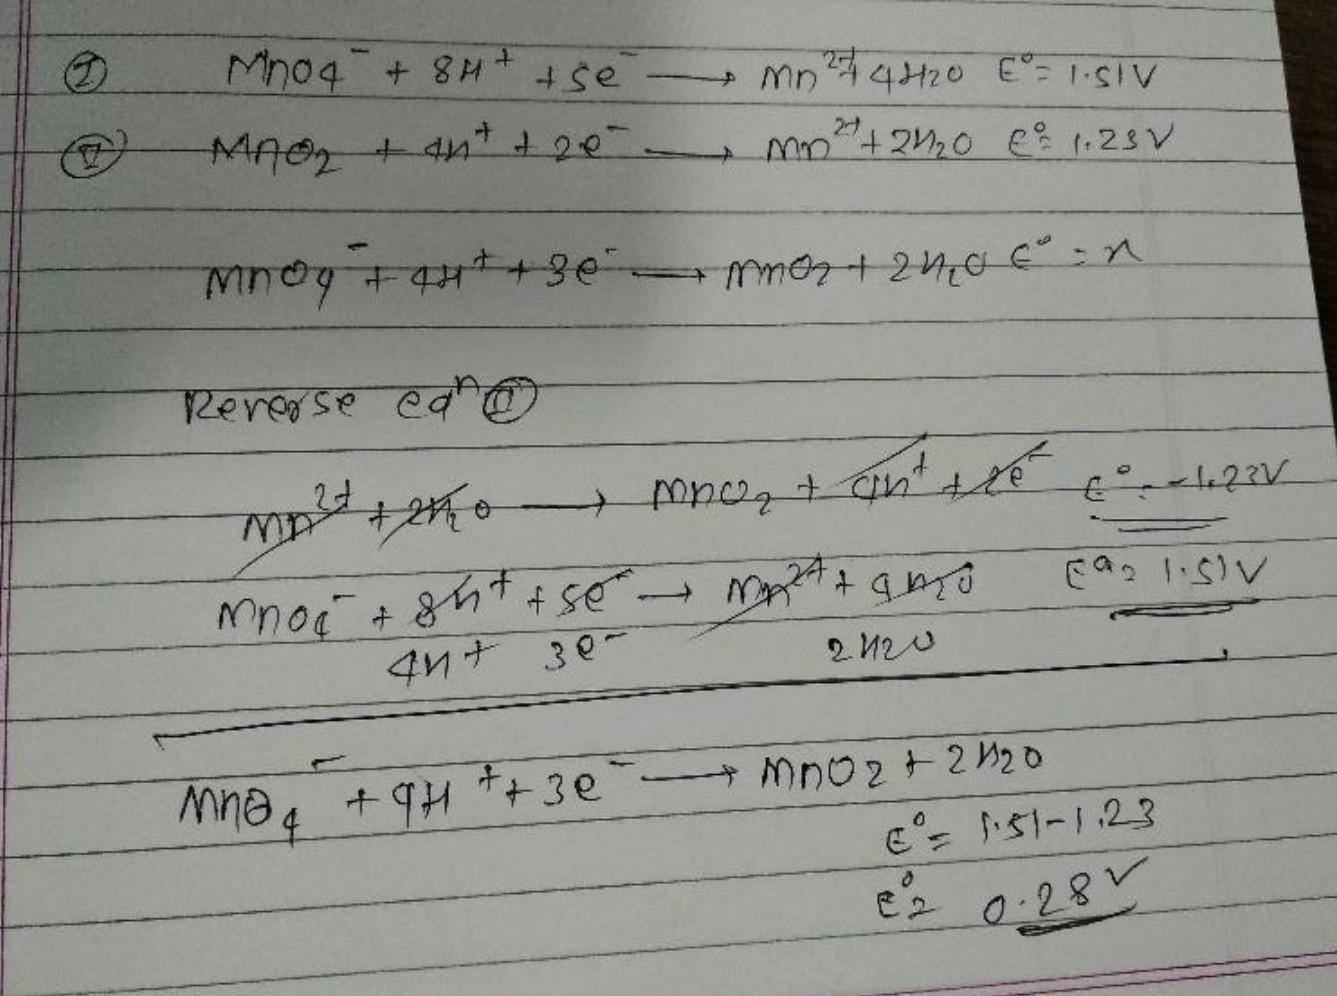 I MnO4⁻ + 8H⁺ + 5e⁻ → Mn²⁺ + 4H2O E° = 1.51V
II MnO2 + 4H⁺ + 2e⁻ → Mn²⁺ + 2H2O E° = 1.23V
MnO4⁻ + 4H⁺ + 3e⁻ → MnO2 + 2H2O E° = x
Reverse eqⁿ II
Mn²⁺ + 2H2O → MnO2 + 4H⁺ + 2e⁻ E° = -1.23V
MnO4⁻ + 8H⁺ + 5e⁻ → Mn²⁺ + 4H2O E° = 1.51V
4H⁺ 3e⁻ 2H2O
MnO4⁻ + 4H⁺ + 3e⁻ → MnO2 + 2H2O
E° = 1.51-1.23
E° = 0.28V